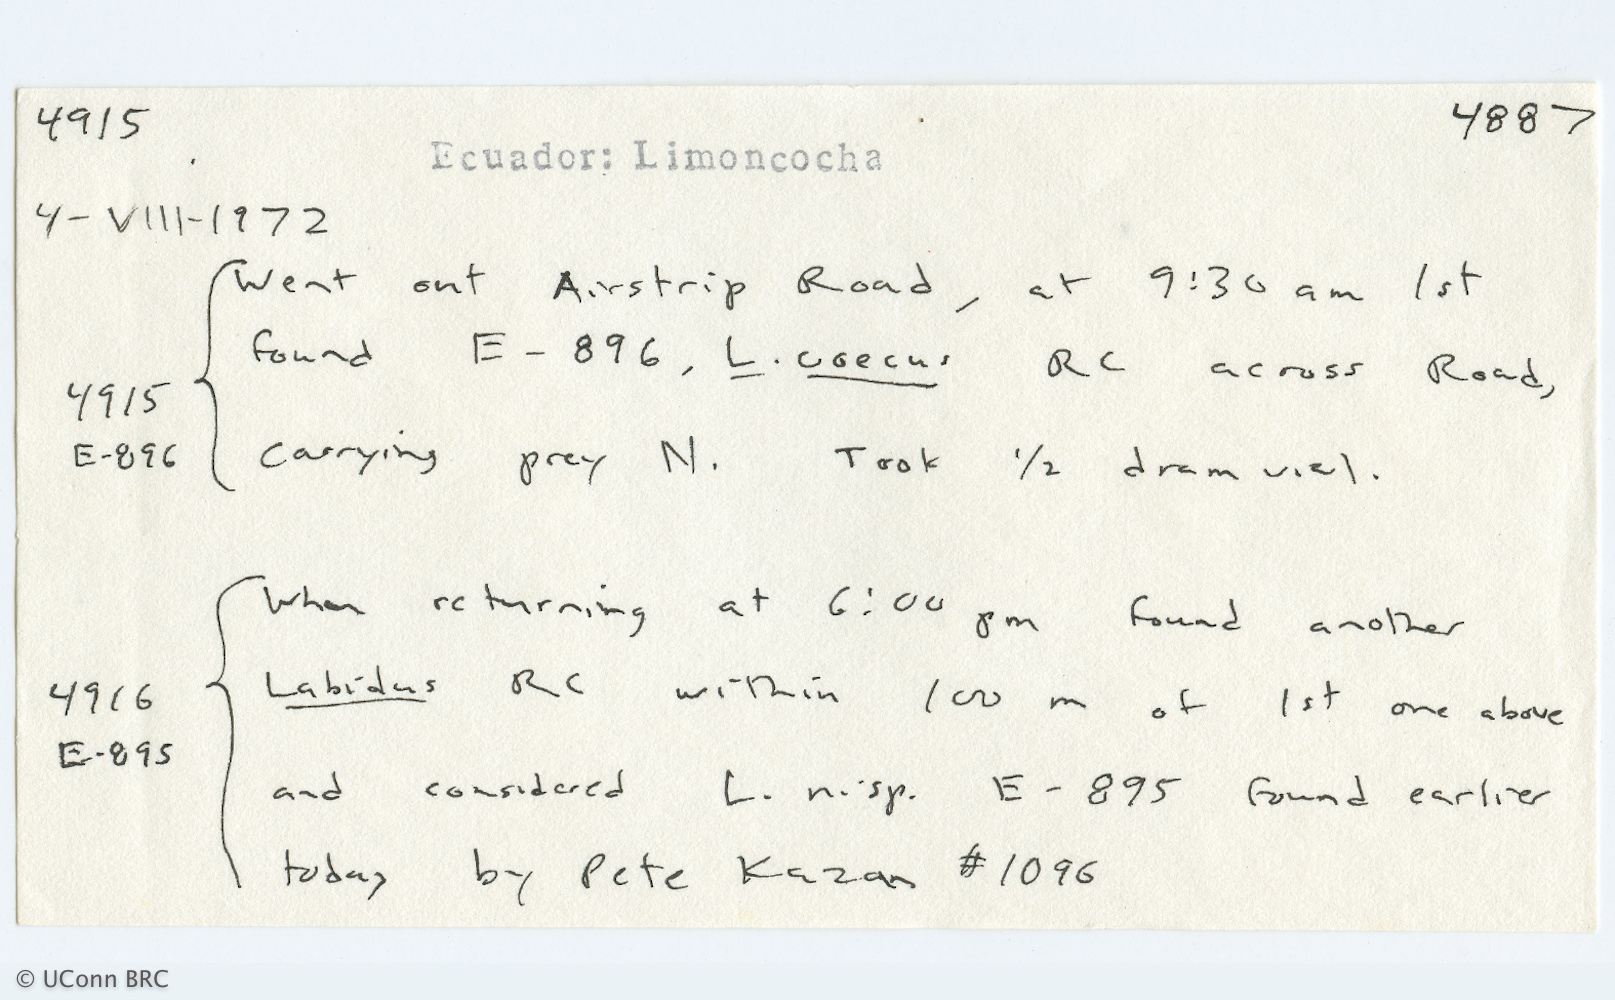 4915 4887
Ecuador: Limoncocha
4-VIII-1972
Went out Airstrip Road, at 9:30 am 1st
found E-896, L. coecus RC across Road,
4915
E-896
carrying prey N. Took 1/2 dram vial.
When returning at 6:00 pm found another
Labidus RC within 100 m of 1st one above
4916
E-895
and considered L. n.sp. E-895 found earlier
today by Pete Kazan #1096
© UConn BRC